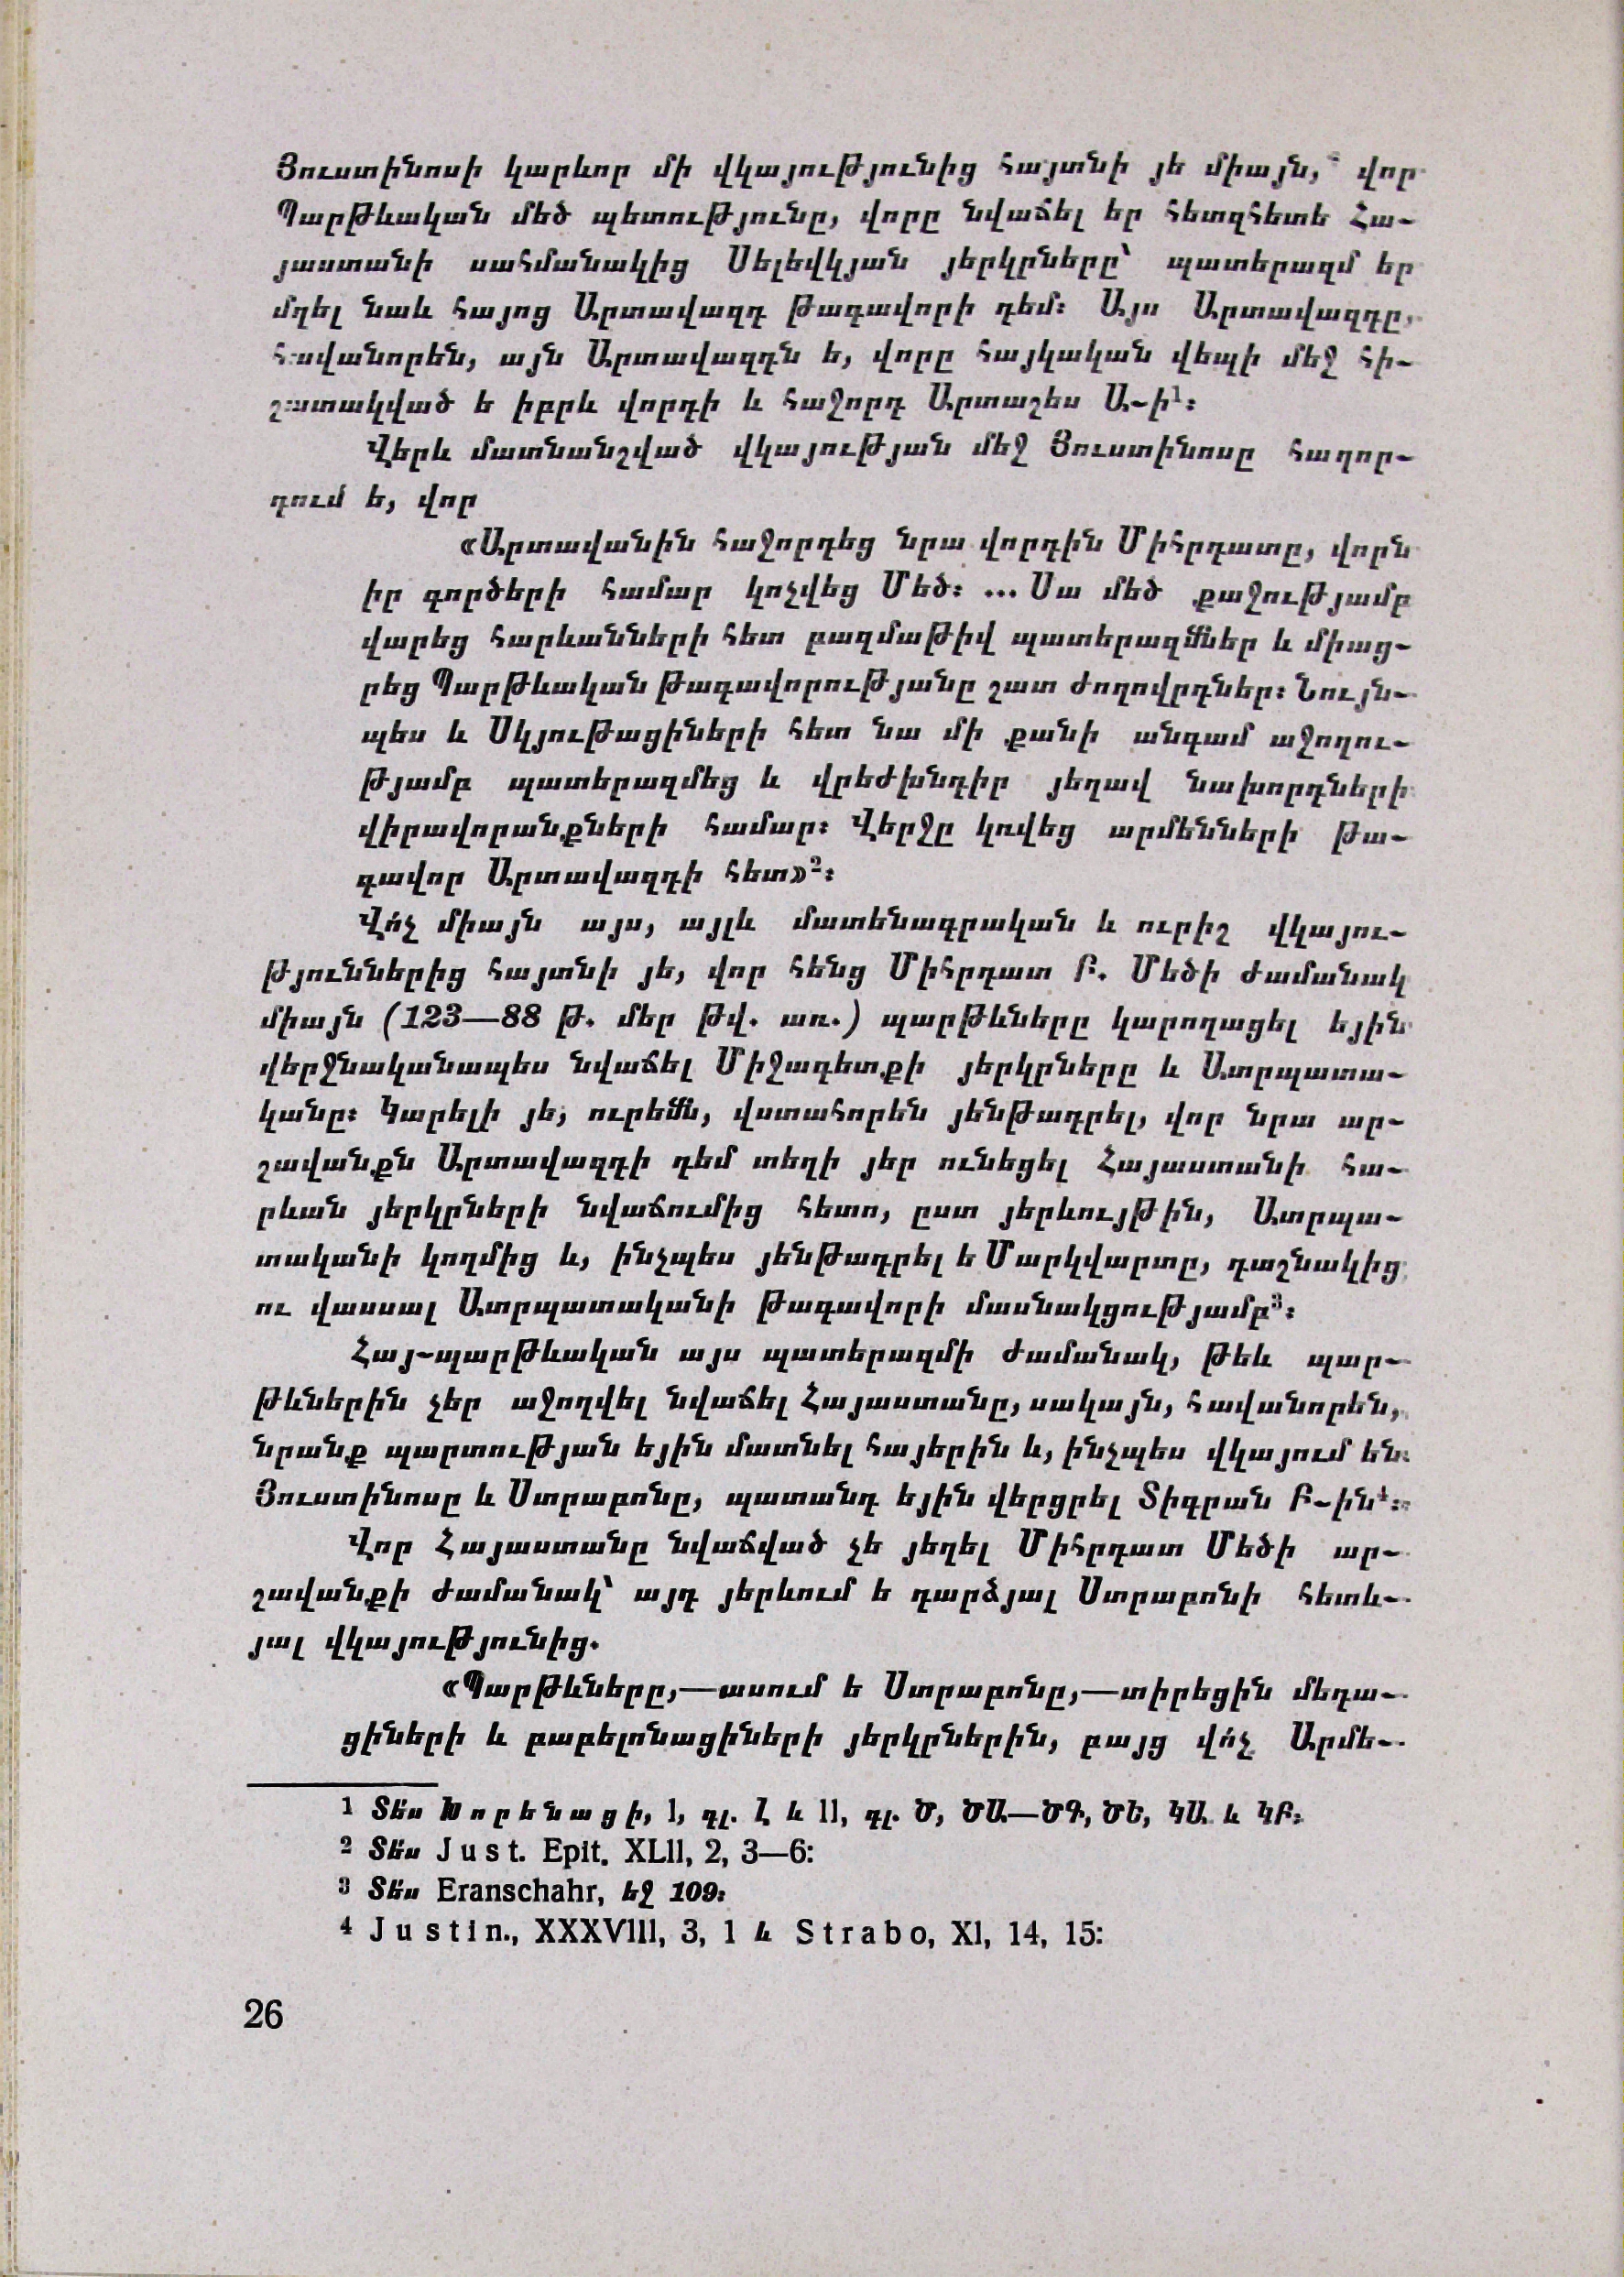 Յուստինոսի կարևոր մի վկայությունից հայտնի յե միայն, վոր
Պարթևական մեծ պետությունը, վորը նվաճել եր հետզհետե Հա-
յաստանի սահմանակից Սելեվկյան յերկրները՝ պատերազմ եր
մղել նաև հայոց Արտավազդ թագավորի դեմ։ Այս Արտավազդը,
հավանորեն, այն Արտավազդն ե, վորը հայկական վեպի մեջ հի-
շատակված ե իբրև վորդի և հաջորդ Արտաշես Ա-ի¹։
Վերև մատնանշված վկայության մեջ Յուստինոսը հաղոր-
դում ե, վոր
«Արտավանին հաջորդեց նրա վորդին Միհրդատը, վորն
իր գործերի համար կոչվեց Մեծ։ ... Սա մեծ քաջությամբ
վարեց հարևանների հետ բազմաթիվ պատերազմներ և միաց-
րեց Պարթևական թագավորությանը շատ ժողովրդներ։ Նույն-
պես և Սկյութացիների հետ նա մի քանի անգամ աջողու-
թյամբ պատերազմեց և վրեժխնդիր յեղավ նախորդների
վիրավորանքների համար։ Վերջը կռվեց արմենների թա-
գավոր Արտավազդի հետ»²։
Վո՛չ միայն այս, այլև մատենագրական և ուրիշ վկայու-
թյուններից հայտնի յե, վոր հենց Միհրդատ Բ. Մեծի ժամանակ
միայն (123—88 թ. մեր թվ. առ.) պարթևները կարողացել եյին
վերջնականապես նվաճել Միջագետքի յերկրները և Ատրպատա-
կանը։ Կարելի յե, ուրեմն, վստահորեն յենթադրել, վոր նրա ար-
շավանքն Արտավազդի դեմ տեղի յեր ունեցել Հայաստանի հա-
րևան յերկրների նվաճումից հետո, ըստ յերևույթին, Ատրպա-
տականի կողմից և, ինչպես յենթադրել ե Մարկվարտը, դաշնակից
ու վասսալ Ատրպատականի թագավորի մասնակցությամբ³։
Հայ-պարթևական այս պատերազմի ժամանակ, թեև պար-
թևներին չեր աջողվել նվաճել Հայաստանը, սակայն, հավանորեն,
նրանք պարտության եյին մատնել հայերին և, ինչպես վկայում են
Յուստինոսը և Ստրաբոնը, պատանդ եյին վերցրել Տիգրան Բ-ին⁴։
Վոր Հայաստանը նվաճված չե յեղել Միհրդատ Մեծի ար-
շավանքի ժամանակ՝ այդ յերևում ե դարձյալ Ստրաբոնի հետև-
յալ վկայությունից.
«Պարթևները,—ասում ե Ստրաբոնը,—տիրեցին մեդա-
ցիների և բաբելոնացիների յերկրներին, բայց վո՛չ Արմե-
1 Տե՛ս Խորենացի, I, գլ. Լ և II, գլ. Ծ, ԾԱ—ԾԳ, ԾԵ, ԿԱ և ԿԲ։
2 Տե՛ս Just. Epit. XLII, 2, 3—6:
3 Տե՛ս Eranschahr, եջ 109։
4 Justin., XXXVIII, 3, 1 և Strabo, XI, 14, 15:
26